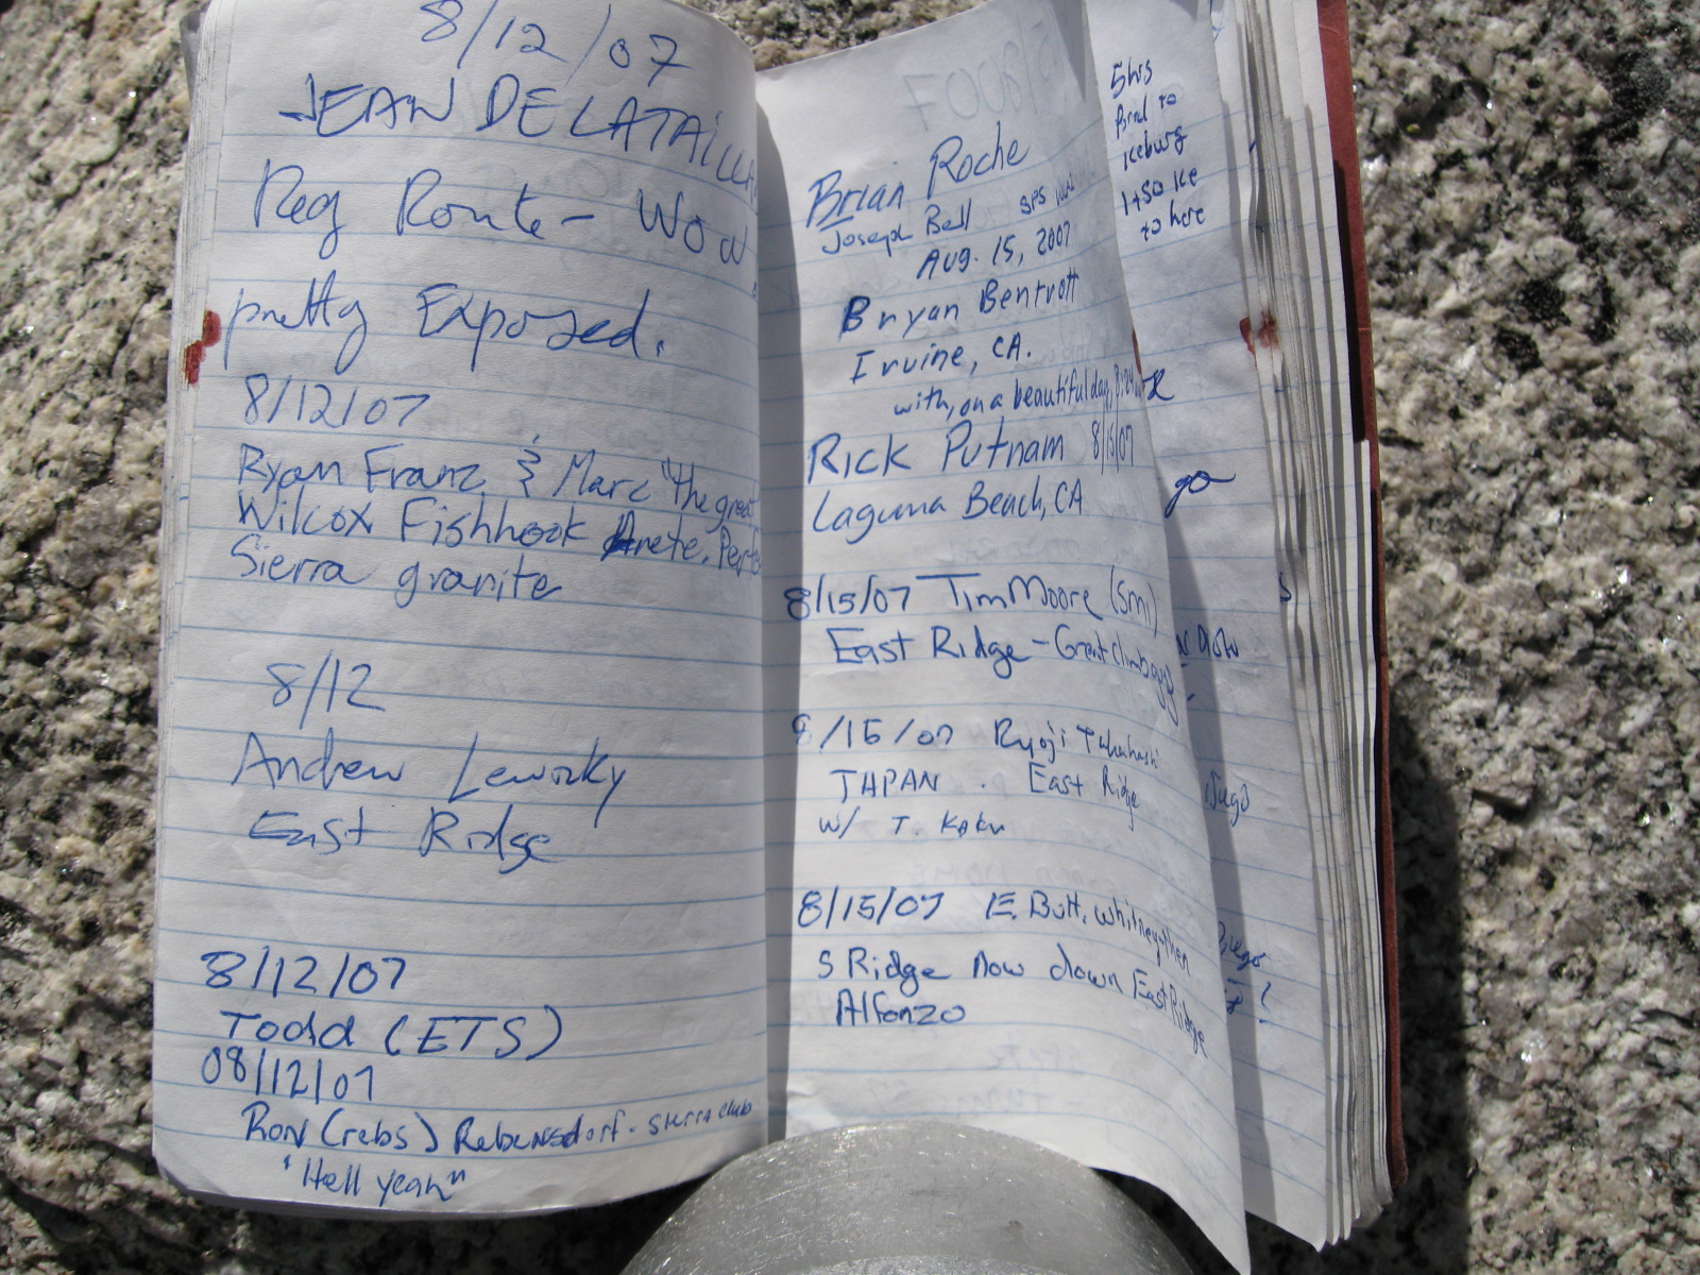 8/12/07
JEAN DE LATAILL
Reg Route - Wow
pretty Exposed.
8/12/07
Ryan Franz & Marc "the great
Wilcox Fishhook Arete. Perfe
Sierra granite
8/12
Andrew
East Ridge
8/12/07
Todd (ETS)
08/12/07
Ron (rebs) Rebensdorf - Sierra Club
"Hell yeah"
Brian Roche
Joseph Bell SPS
Aug. 15, 2007
Bryan Bentrott
Irvine, CA.
with, on a beautiful day,
Rick Putnam 8/15/07
Laguna Beach, CA
8/15/07 Tim Moore (SMI)
East Ridge - Great climb
8/15/07 Ryoji Takahashi
JAPAN. East Ridge
w/ T. Kaku
8/15/07 E. Butt. Whitney then
S Ridge now down East Ridge
Alfonzo
5hrs
to
Iceburg
1+50 Ice
to here
go